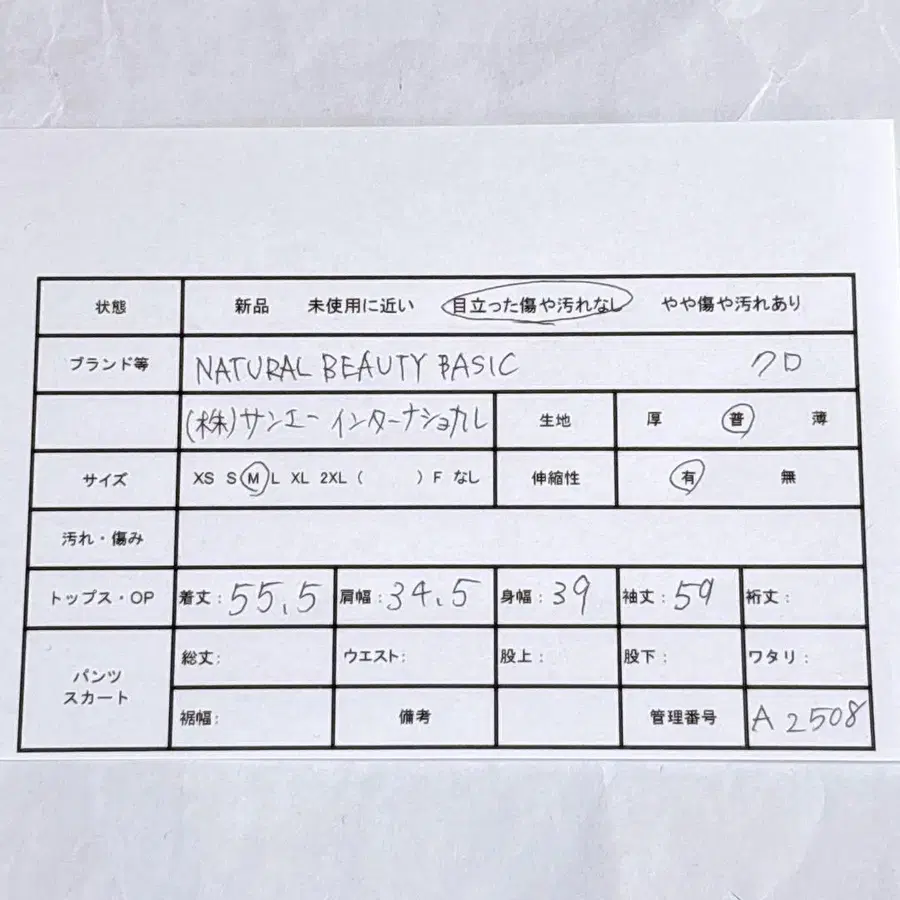 状態 新品 未使用に近い 目立った傷や汚れなし やや傷や汚れあり
ブランド等 NATURAL BEAUTY BASIC クロ
(株)サンエーインターナショカル 生地 厚 普 薄
サイズ XS S M L XL 2XL ( ) F なし 伸縮性 有 無
汚れ・傷み
トップス・OP 着丈:55.5 肩幅:34.5 身幅:39 袖丈:59 裄丈:
パンツ
スカート
総丈: ウエスト: 股上: 股下: ワタリ:
裾幅: 備考 管理番号 A2508